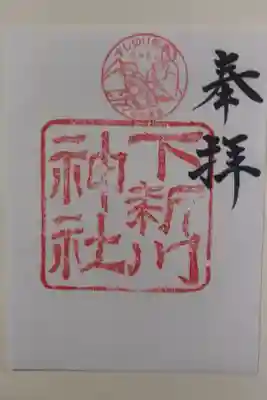 奉拝
下新川
神社